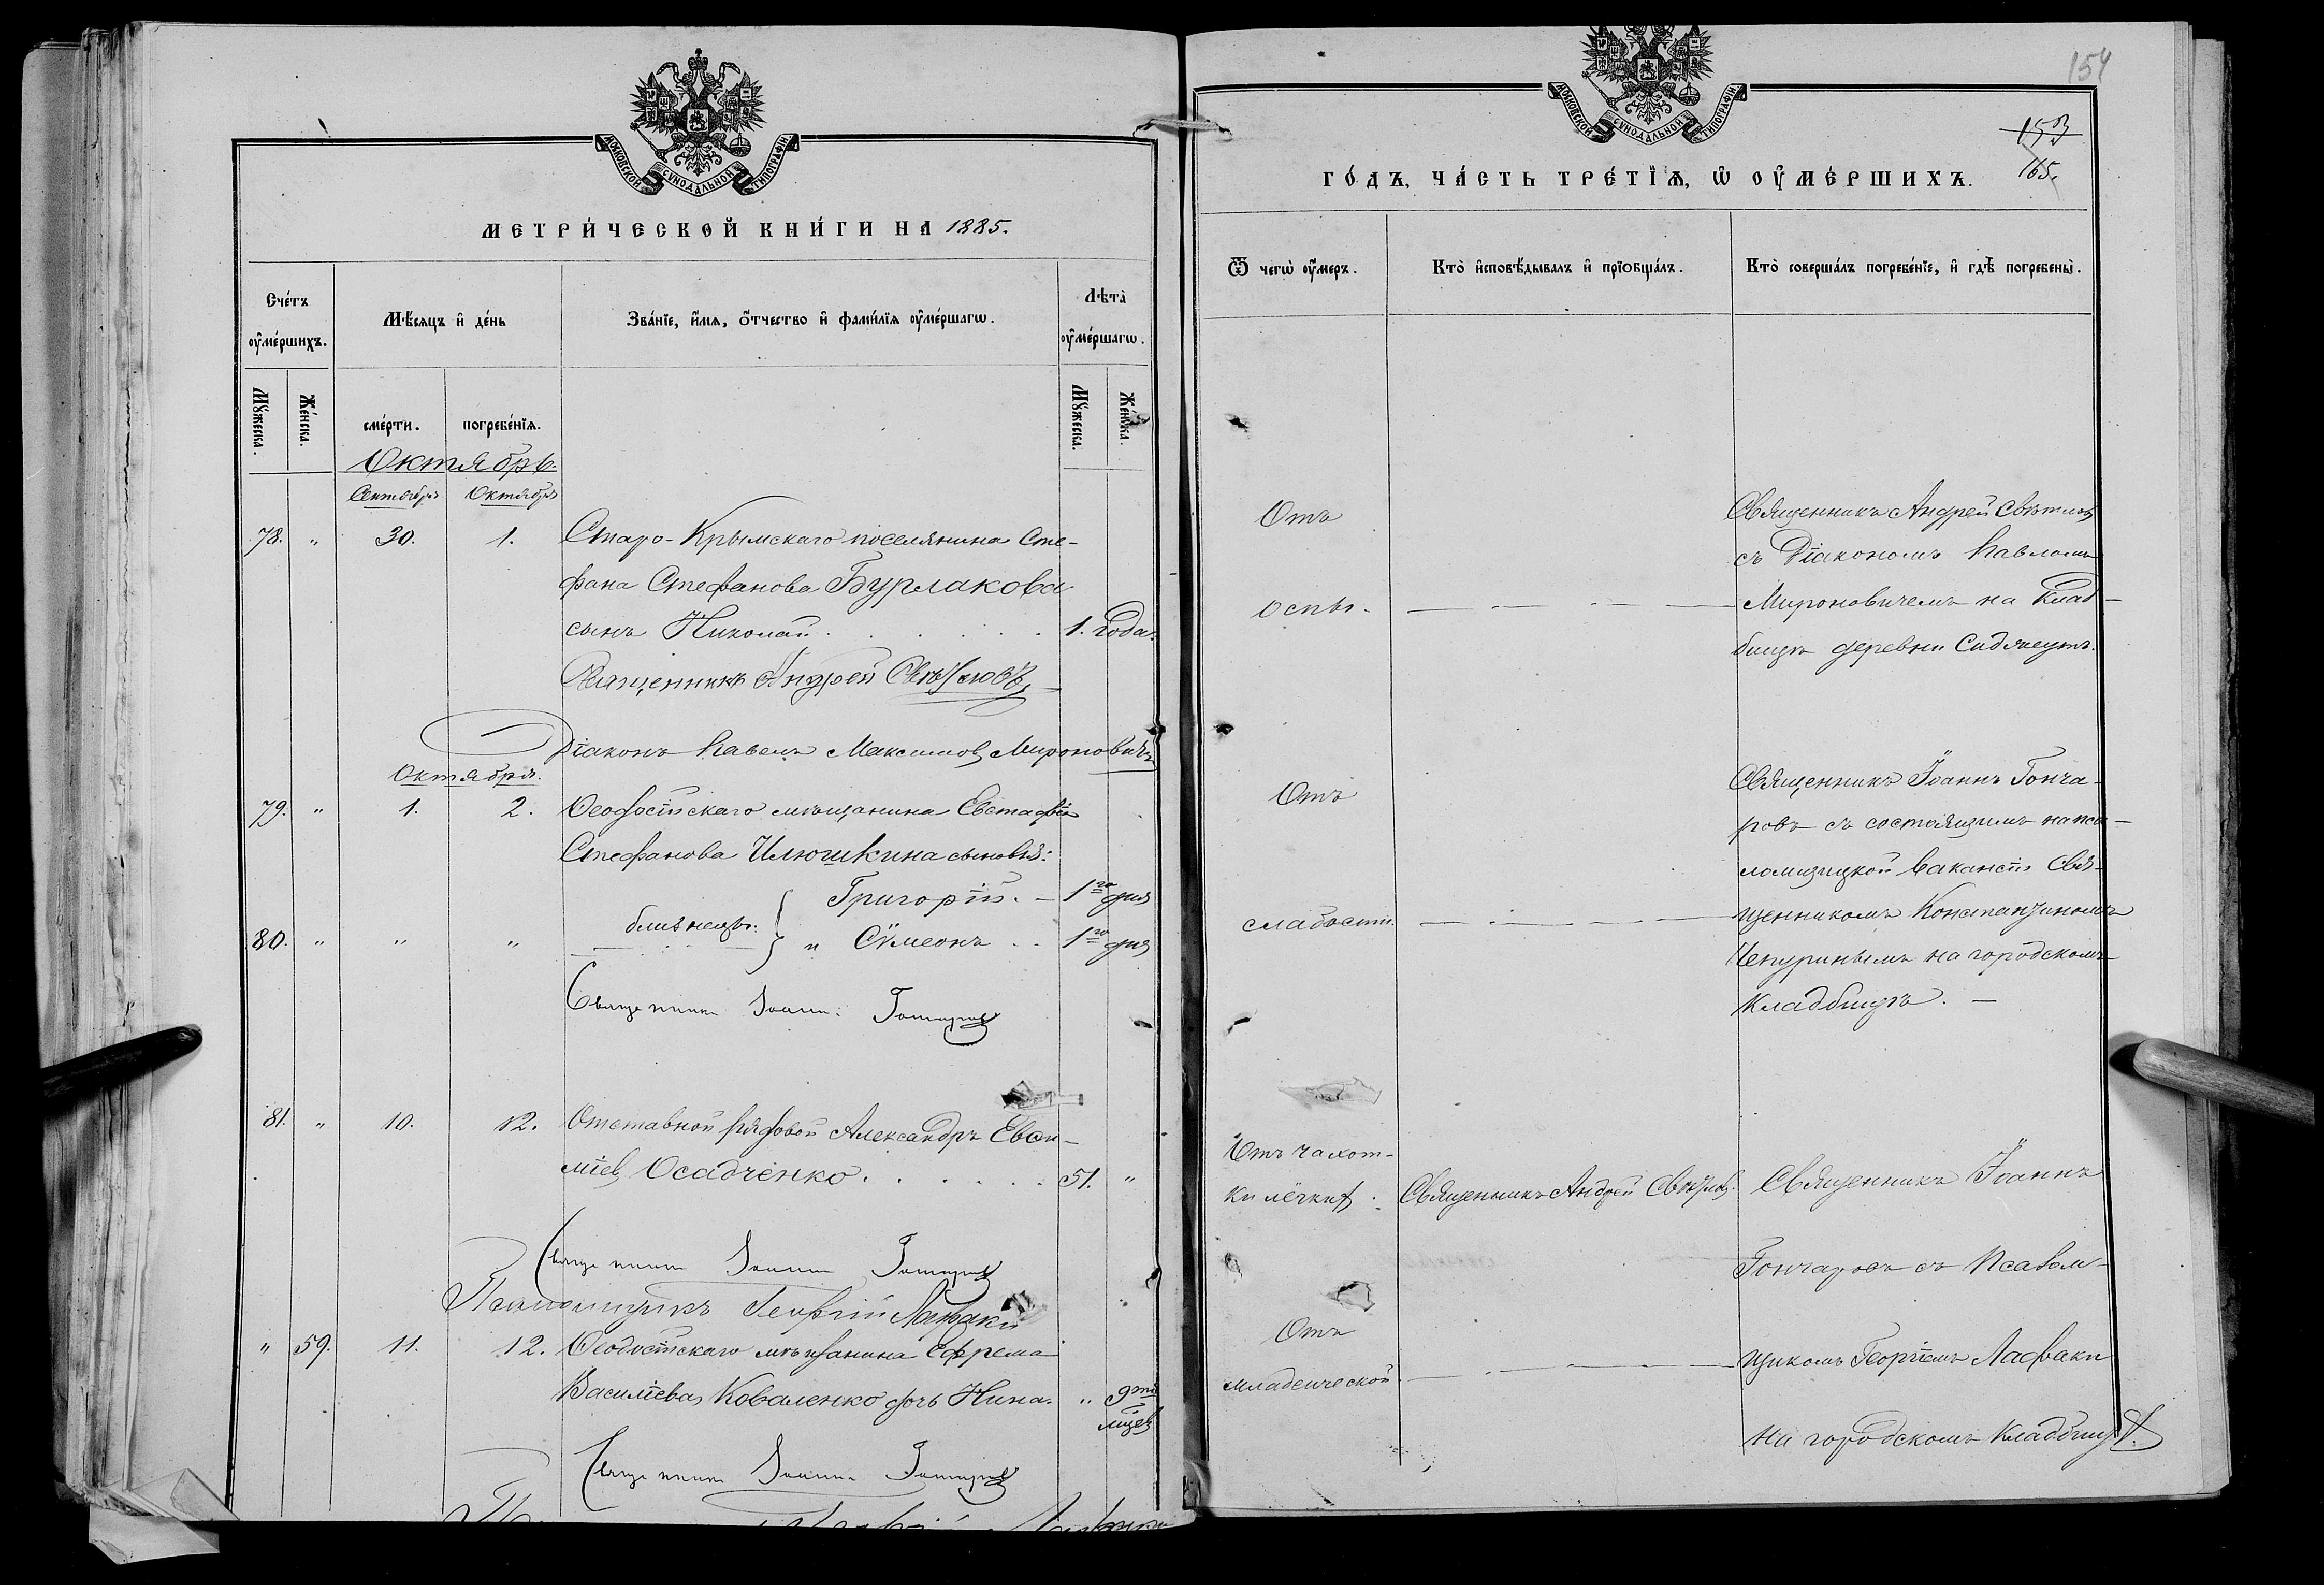 МОСКОВСКОЙ СѴНОДАЛЬНОЙ ТИПОГРАФІИ
МЕТРИ́ЧЕСКОЙ КНИ́ГИ НА 1885.
Сче́тъ ᲂу҆ме́ршихъ.
Мѣ́сяцъ и҆ де́нь
Зва́нїе, и҆́мѧ, ѻ҆́тчество и҆ фами́лїѧ ᲂу҆ме́ршагѡ.
Лѣта̀ ᲂу҆ме́ршагѡ.
Мꙋ́жеска.
Же́нска.
сме́рти.
погребе́нїѧ.
Мꙋ́жеска.
Же́нска.
Октябрь.
Сентября Октября
78. " 30. 1. Старо-Крымскаго поселянина Сте-
фана Стефанова Бурлакова
сынъ Николай . . . . . . 1. года.
Священникъ Андрей Свѣтловъ
Діаконъ Павелъ Максимовъ Мироновичъ
Октября.
79. " 1. 2. Ѳеодосійскаго мѣщанина Евстафія
Стефанова Илюшкина сыновья:
Григорій. – 1го дня
близнецы:
80. " " " и Сѵмеонъ . . 1го дня
Священникъ Іоаннъ Гончаровъ
81. " 10. 12. Отставной рядовой Александръ Евѳи-
міевъ Осадченко . . . . . . 51. "
Священникъ Іоаннъ Гончаровъ
Псаломщикъ Георгій Лафаки
" 59. 11. 12. Ѳеодосійскаго мѣщанина Ефрема
Василіева Коваленко дочь Нина. " 9ти
мцевъ
Священникъ Іоаннъ Гончаровъ
154
153
165.
МОСКОВСКОЙ СѴНОДАЛЬНОЙ ТИПОГРАФІИ
ГО́ДЪ, ЧА́СТЬ ТРЕ́ТЇѦ, Ѡ҆ ОУ҆МЕ́РШИХЪ.
Ѿ чегѡ̀ ᲂу҆́меръ.
Кто̀ и҆сповѣ́дывалъ и҆ прїобща́лъ.
Кто̀ соверша́лъ погребе́нїе, и҆ гдѣ̀ погребены̀.
Отъ
оспы.
Священникъ Андрей Свѣтловъ
съ Діакономъ Павломъ
Мироновичемъ на клад-
бищѣ деревни
Отъ
слабости.
Священникъ Іоаннъ Гонча-
ровъ съ состоящимъ на пса-
ломщицкой вакансіи Свя-
щенникомъ Константиномъ
Чепуринымъ на городскомъ
кладбищѣ. –
Отъ чахот-
ки лёгкихъ.
Священникъ Андрей Свѣтловъ.
Священникъ Іоаннъ
Гончаровъ съ Псалом-
Отъ
младенческой
щикомъ Георгіемъ Лафаки
на городскомъ кладбищѣ.